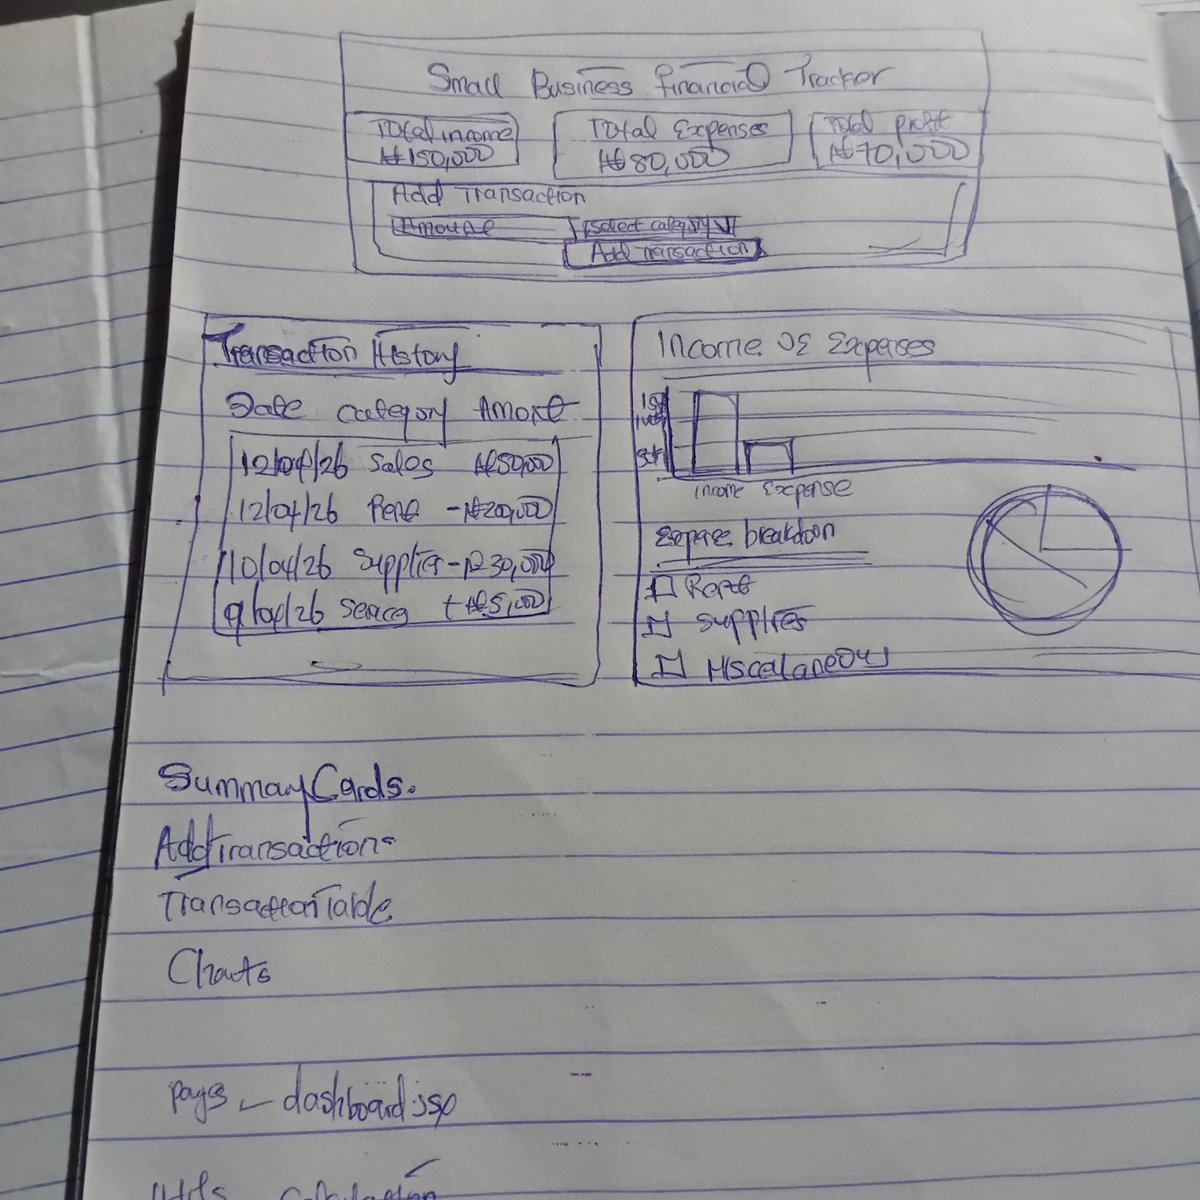 Small Business Financial Tracker
Total income
₦150,000
Total Expenses
₦80,000
Total profit
₦70,000
Add Transaction
Amount
Select category
Add Transaction
Transaction History
Date Category Amount
12/04/26 Sales ₦50,000
12/04/26 Rent -₦200,000
10/04/26 Supplier -₦30,000
9/04/26 +₦5,000
Income Expenses
Income Expense
breakdown
Rent
Supplies
Miscelaneous
SummaryCards.
AddTransaction
TransactionTable
Charts
pages - dashboard.jsp
Utils calculation